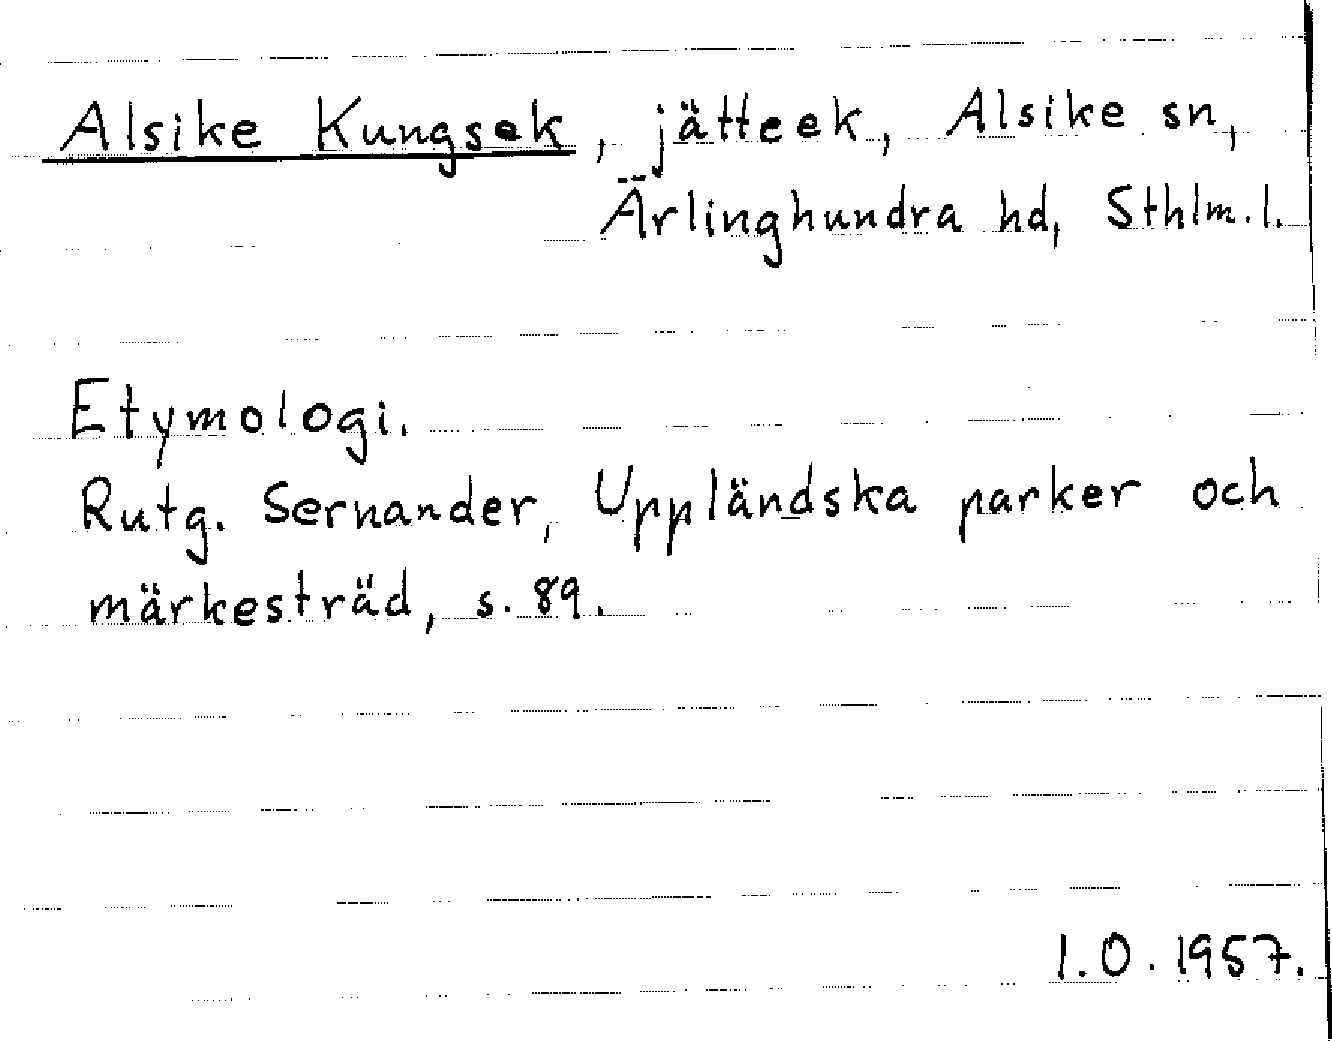 Alsike Kungsek, jätteek, Alsike sn,
Ärlinghundra hd, Sthlm.l.
Etymologi.
Rutg. Sernander, Uppländska parker och
märkesträd, s. 89.
I.O. 1957.